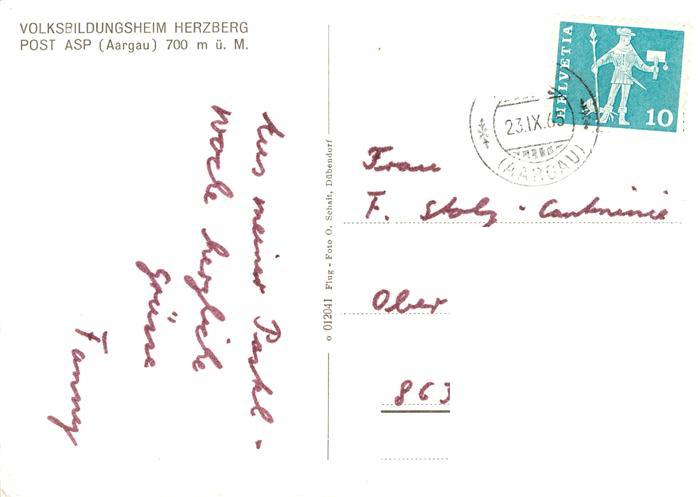 VOLKSBILDUNGSHEIM HERZBERG
POST ASP (Aargau) 700 m ü. M.
Aus meiner Bastel-
woche herzliche
Grüsse
Fanny
o 012041 Flug - Foto O. Schait, Dübendorf
HELVETIA
10
23.IX.6
(AARGAU)
Frau
F. Stolz-
Ober
863